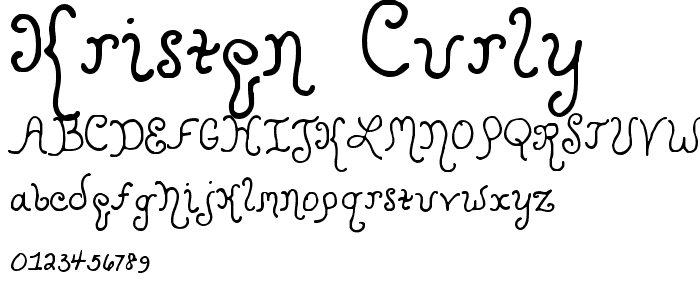 Kristen Curly
ABCDEFGHIJKLMNOPQRSTUVW
abcdefghijklmnopqrstuvwxyz
0123456789